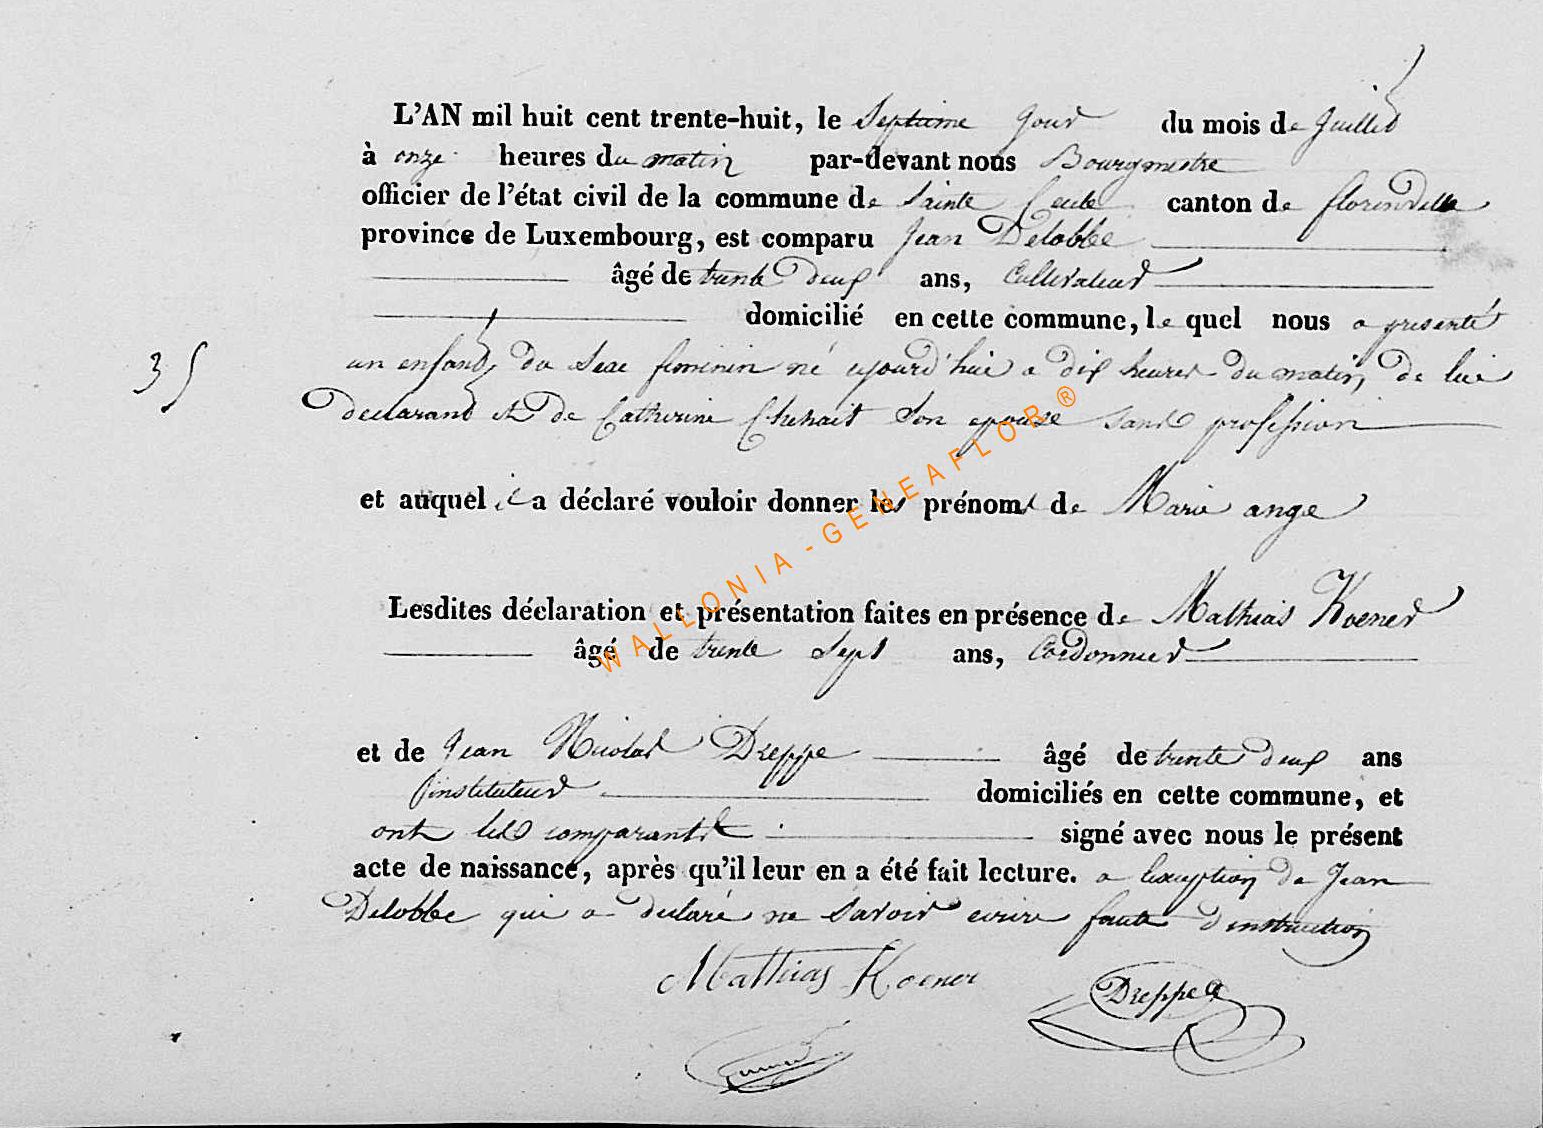 L'AN mil huit cent trente-huit, le Septieme Jour du mois de Juillet
à onze heures du matin par-devant nous Bourgmestre
officier de l'état civil de la commune de Sainte Cecile canton de florenville
province de Luxembourg, est comparu Jean Delobbe
âgé de trente deux ans, Cultivateur
domicilié en cette commune, le quel nous a presenté
35 un enfant du Sexe feminin né ajourd'hui a dix heures du matin, de lui
declarant et de Catherine son epouse sans profession
et auquel il a déclaré vouloir donner les prénoms de Marie ange
Lesdites déclaration et présentation faites en présence de Mathias Koener
âgé de trente Sept ans, Cordonnier
et de Jean Nicolas Dreppe âgé de trente deux ans
instituteur domiciliés en cette commune, et
ont les comparants signé avec nous le présent
acte de naissance, après qu'il leur en a été fait lecture. a l'exception de Jean
Delobbe qui a declaré ne Savoir ecrire faute d'instruction
Mathias Koener
Dreppe
WALLONIA-GENEAFLOR®